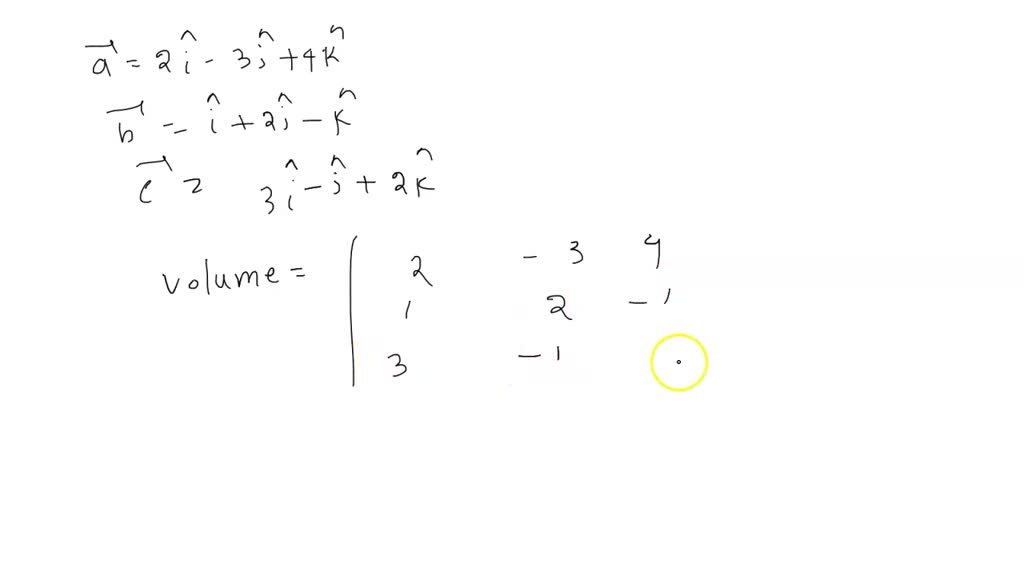 →a = 2î - 3ĵ + 4k̂
→b = î + 2ĵ - k̂
→c = 3î - ĵ + 2k̂
volume = | 2 - 3 4
1 2 - 1
3 - 1